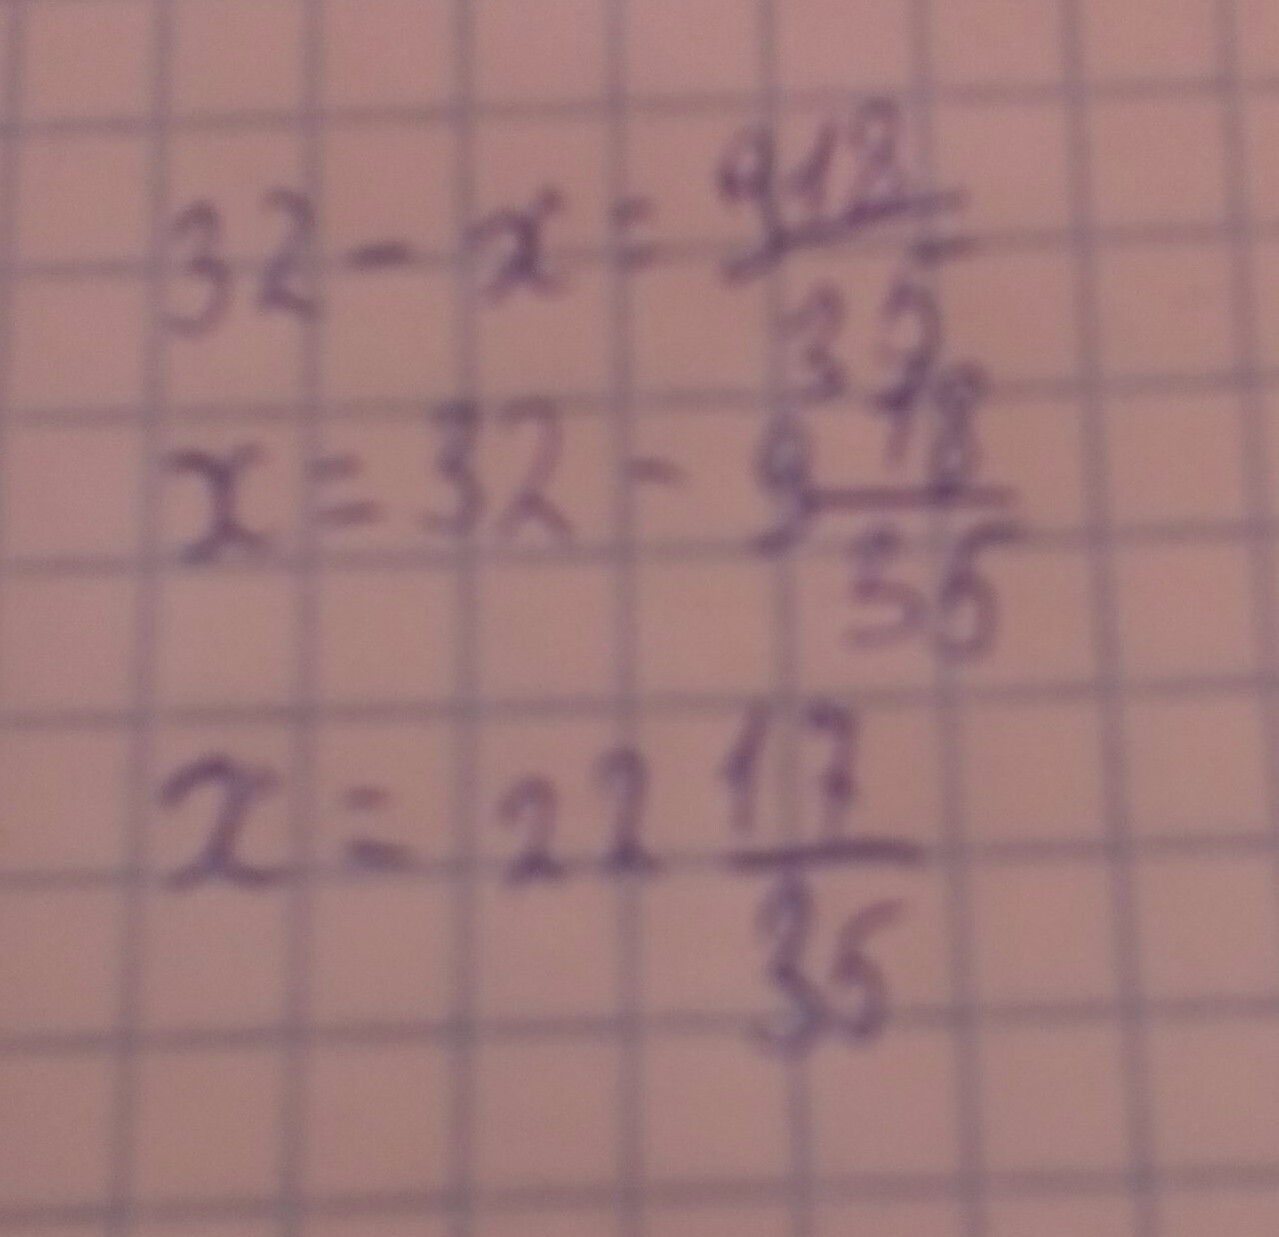 32 - x = 9 18/35
x = 32 - 9 18/35
x = 22 17/35